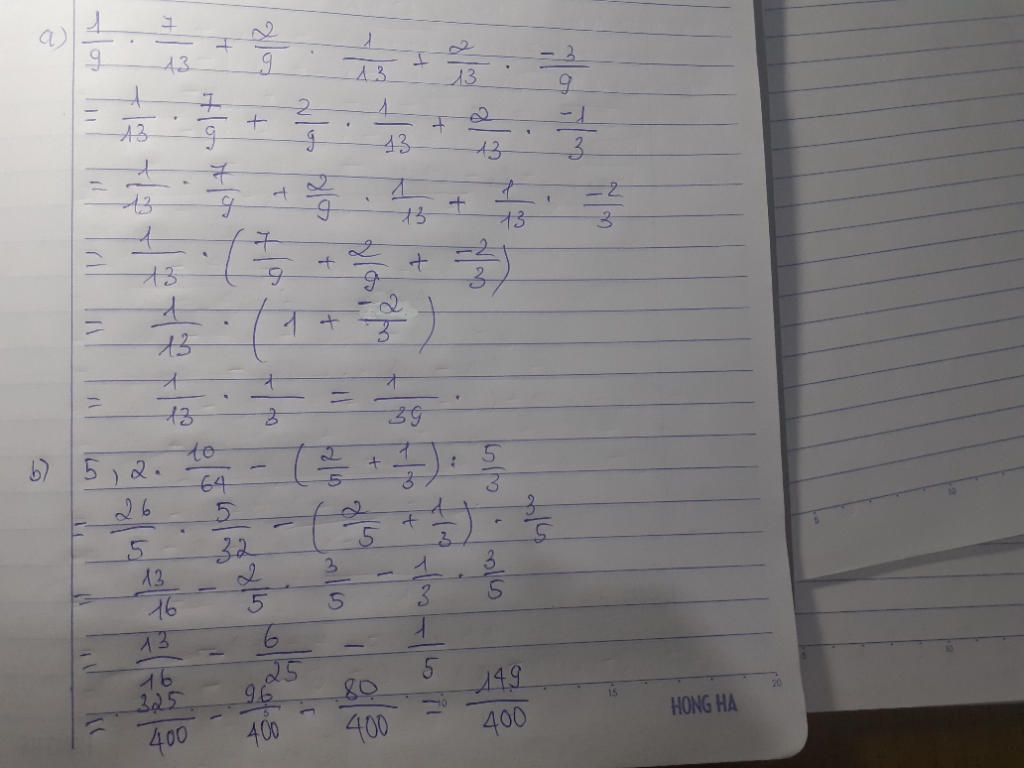 a) 1/9 . 7/13 + 2/9 . 1/13 + 2/13 . -3/9
= 1/13 . 7/9 + 2/9 . 1/13 + 2/13 . -1/3
= 1/13 . 7/9 + 2/9 . 1/13 + 1/13 . -2/3
= 1/13 . (7/9 + 2/9 + -2/3)
= 1/13 . (1 + -2/3)
= 1/13 . 1/3 = 1/39 .
b) 5,2 . 10/64 - (2/5 + 1/3) : 5/3
= 26/5 . 5/32 - (2/5 + 1/3) . 3/5
= 13/16 - 2/5 . 3/5 - 1/3 . 3/5
= 13/16 - 6/25 - 1/5
= 325/400 - 96/400 - 80/400 = 149/400
10 15 20
HONG HA
5 10
5 10